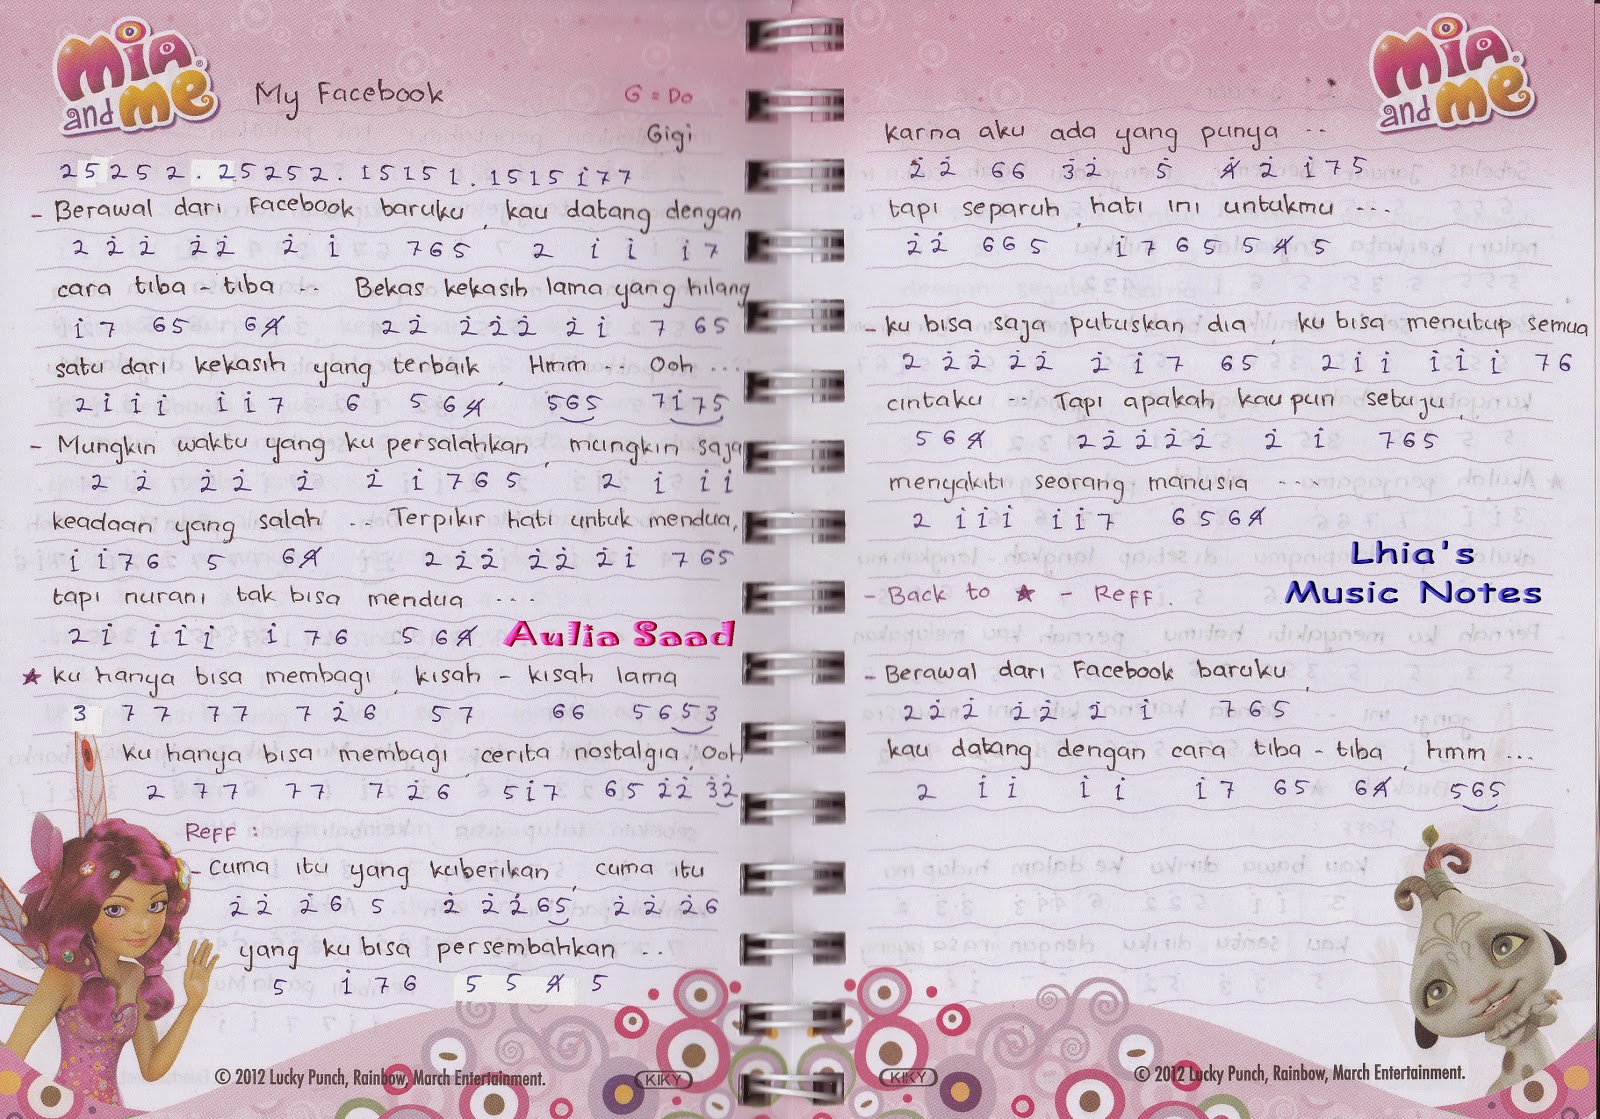 mia and me
My Facebook G = Do
Gigi
2 5 2 5 2 . 2 5 2 5 2 . 1 5 1 5 1 . 1 5 1 5 i 7 7
- Berawal dari Facebook baruku, kau datang dengan
2 2̇ 2̇ 2̇ 2̇ 2̇ i 7 6 5 2 i i i 7
cara tiba - tiba ... Bekas kekasih lama yang hilang
i 7 6 5 6 4̸ 2 2̇ 2̇ 2̇ 2̇ 2̇ i 7 6 5
satu dari kekasih yang terbaik, Hmm ... Ooh ...
2 i i i i i 7 6 5 6 4̸ 5 6 5 7 i 7 5
- Mungkin waktu yang ku persalahkan, mungkin saja
2 2̇ 2̇ 2̇ 2̇ 2̇ i 7 6 5 2 i i i
keadaan yang salah ... Terpikir hati untuk mendua,
i i 7 6 5 6 4̸ 2 2̇ 2̇ 2̇ 2̇ 2̇ i 7 6 5
tapi nurani tak bisa mendua ...
2 i i i i i 7 6 5 6 4̸ Aulia Saad
★ ku hanya bisa membagi, kisah - kisah lama
3 7 7 7 7 7 2̇ 6 5 7 6 6 5 6 5 3
ku hanya bisa membagi, cerita nostalgia, Ooh
2 7 7 7 7 7 7 2̇ 6 5 i 7 6 5 2̇ 2̇ 3̇ 2̇
Reff :
- Cuma itu yang kuberikan, cuma itu
2̇ 2̇ 2̇ 6 5 2̇ 2̇ 2̇ 6 5 2̇ 2̇ 2̇ 6
yang ku bisa persembahkan ..
5 i 7 6 5 5 4̸ 5
© 2012 Lucky Punch, Rainbow, March Entertainment.
KIKY
mia and me
karna aku ada yang punya ..
2̇ 2̇ 6 6 3̇ 2̇ 5 4̸ 2̇ i 7 5
tapi separuh, hati ini untukmu ...
2̇ 2̇ 6 6 5 i 7 6 5 5 4̸ 5
- ku bisa saja putuskan dia, ku bisa menutup semua
2 2̇ 2̇ 2̇ 2̇ 2̇ i 7 6 5 2 i i i i i 7 6
cintaku ... Tapi apakah kau pun setuju,
5 6 4̸ 2 2̇ 2̇ 2̇ 2̇ 2̇ i 7 6 5
menyakiti seorang manusia ....
2 i i i i i 7 6 5 6 4̸
Lhia's
Music Notes
- Back to ★ - Reff.
- Berawal dari Facebook baruku,
2 2̇ 2̇ 2̇ 2̇ 2̇ i 7 6 5
kau datang dengan cara tiba - tiba, hmm ...
2 i i i i i 7 6 5 6 4̸ 5 6 5
KIKY
© 2012 Lucky Punch, Rainbow, March Entertainment.